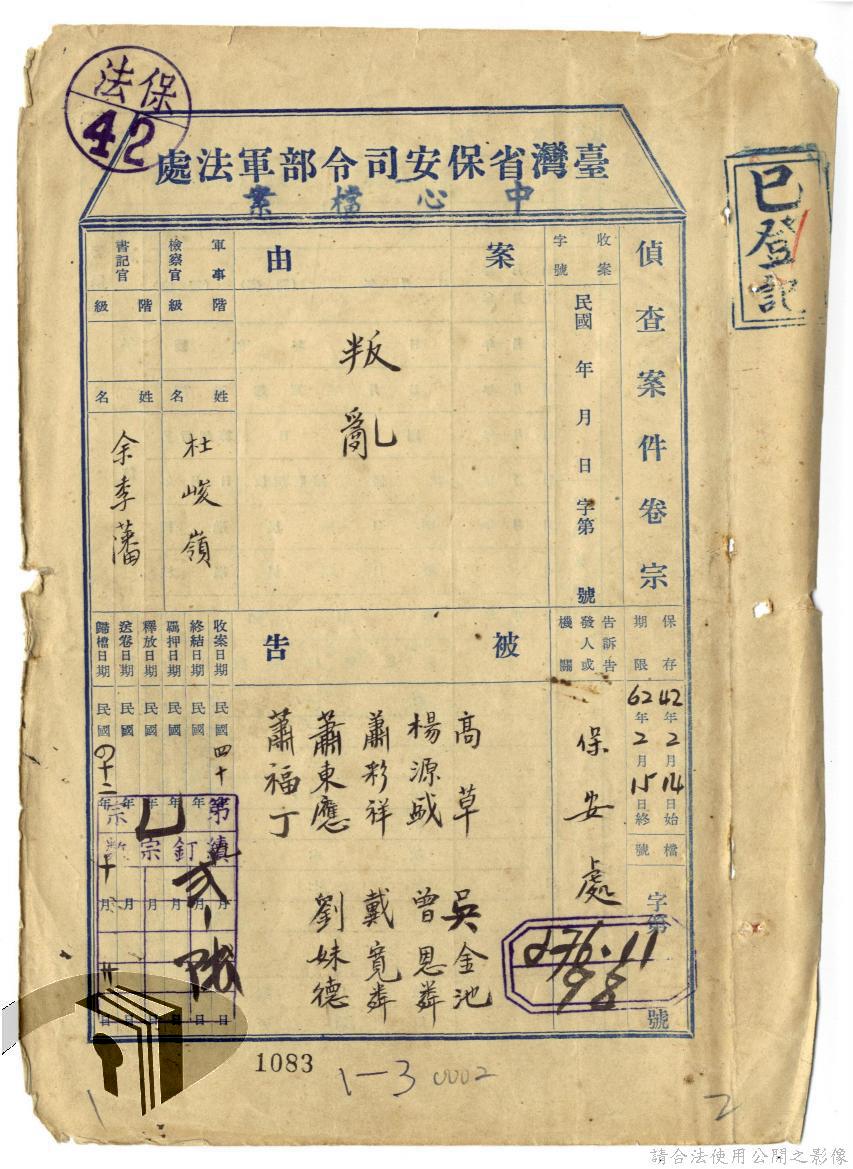 保法
42
臺灣省保安司令部軍法處
中心檔案
已登記
偵查案件卷宗
保存期限
42年2月14日始
62年2月15日終
檔號
字第
號
276.11
98
收案字號
民國 年 月 日 字第 號
告訴告發人或機關
保安處
案由
叛亂
被告
高草 吳金池
楊源盛 曾恩犇
蕭彩祥 戴寬犇
蕭東應 劉妹德
蕭福丁
軍事檢察官
階級
姓名
杜峻嶺
書記官
階級
姓名
余季藩
收案日期 民國四十 年 月 日
終結日期 民國 年 月 日
羈押日期 民國 年 月 日
釋放日期 民國 年 月 日
送卷日期 民國 年 月 日
歸檔日期 民國四十二年十月廿 日
第
宗
續訂宗數
1083
1-3
0002
1
2
請合法使用公開之影像